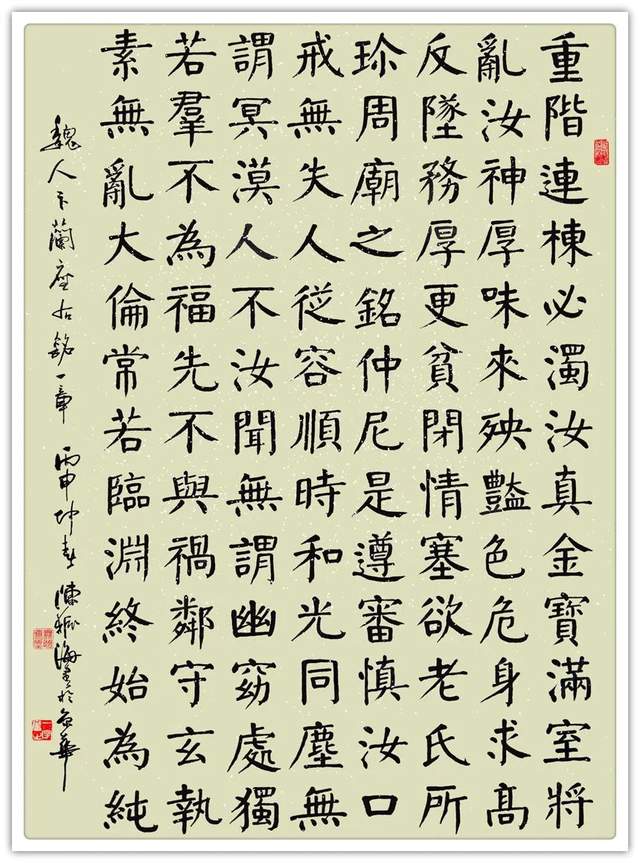 重階連棟必濁汝真金寶滿室將
亂汝神厚味來殃豔色危身求高
反墜務厚更貧閉情塞欲老氏所
珎周廟之銘仲尼是遵審慎汝口
戒無失人従容順時和光同塵無
謂冥漠人不汝聞無謂幽窈處獨
若羣不為福先不與禍鄰守玄執
素無亂大倫常若臨淵終始為純
魏人卞蘭座右銘一章 丙申仲春 陳海書於京華